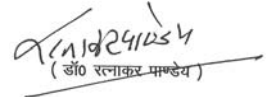 रत्नाकर पाण्डेय
( डॉ0 रत्नाकर पाण्डेय )